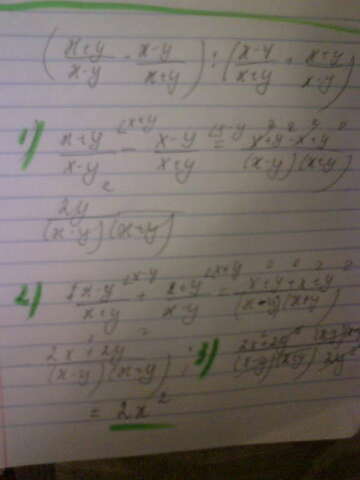 (x+y/x-y - x-y/x+y) : (x-y/x+y + x+y/x-y)
1) x+y/x-y - x-y/x+y = x²+y²-x²+y²/(x-y)(x+y)
2y²/(x-y)(x+y)
2) x-y/x+y + x+y/x-y = x²+y²+x²+y²/(x-y)(x+y)
2x²+2y²/(x-y)(x+y) ; 3) 2x²+2y²/(x-y)(x+y)
= 2x²